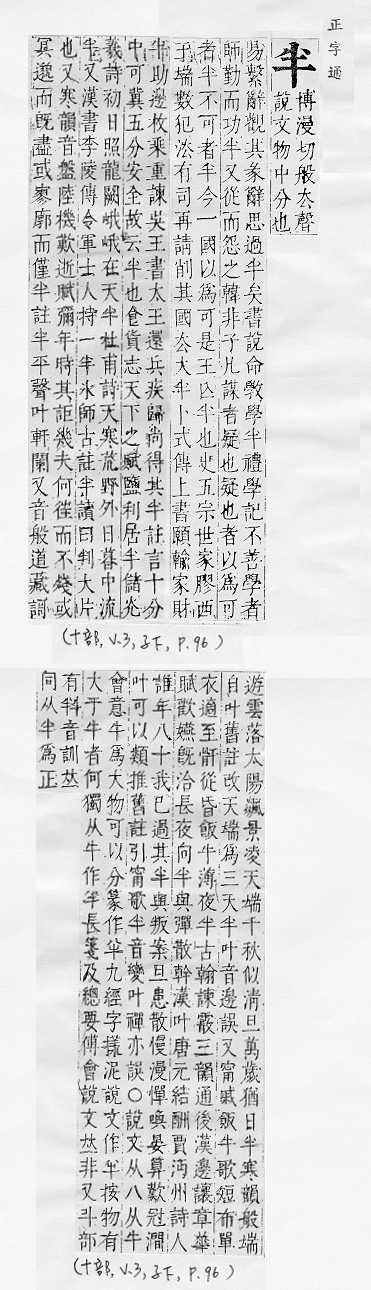 正字通
半
博漫切般去聲
說文物中分也
易繫辭觀其彖辭思過半矣書說命斆學半禮學記不善學者
師勤而功半又從而怨之韓非子凡謀者疑也疑也者以為可
者半不可者半今一國以為可是王亡半也史五宗世家膠西
于端數犯法有司再請削其國去太半卜式傳上書願輸家財
半助邊枚乗重諫吳王書太王還兵疾歸尚得其半註言十分
中可冀五分安全故云半也食貨志天下之賦鹽利居半儲光
羲詩初日照龍闕峨峨在天半杜甫詩天寒荒野外日暮中流
半又漢書李陵傳令軍士人持一半氷師古註半讀曰判大片
也又寒韻音盤陸機歎逝賦彌年時其詎幾夫何往而不殘或
冥邈而旣盡或寥廓而僅半註半平聲叶軒闌又音般道藏謌
(十部, V.3, 子下, P.96)
遊雲落太陽飈景凌天端千秋似清旦萬歲猶日半寒韻般端
自叶舊註改天端為三天半叶音邊誤又甯戚飯牛歌短布單
衣適至骭從昏飯牛薄夜半古翰諫霰三韻通後漢邊讓章華
賦歡嬿旣洽長夜向半與彈散幹漢叶唐元結酬賈沔州詩人
誰年八十我已過其半與叛案旦患散慢漫憚喚晏算歎冠澗
叶可以類推舊註引甯歌半音變叶禪亦誤○說文从八从牛
會意牛為大物可以分篆作 九經字樣泥說文作 按物有
大于牛者何獨从牛作 長箋及緫要傅會說文𠀤非又斗部
有料音訓𠀤
同从半為正
(十部, V.3, 子下, P.96)